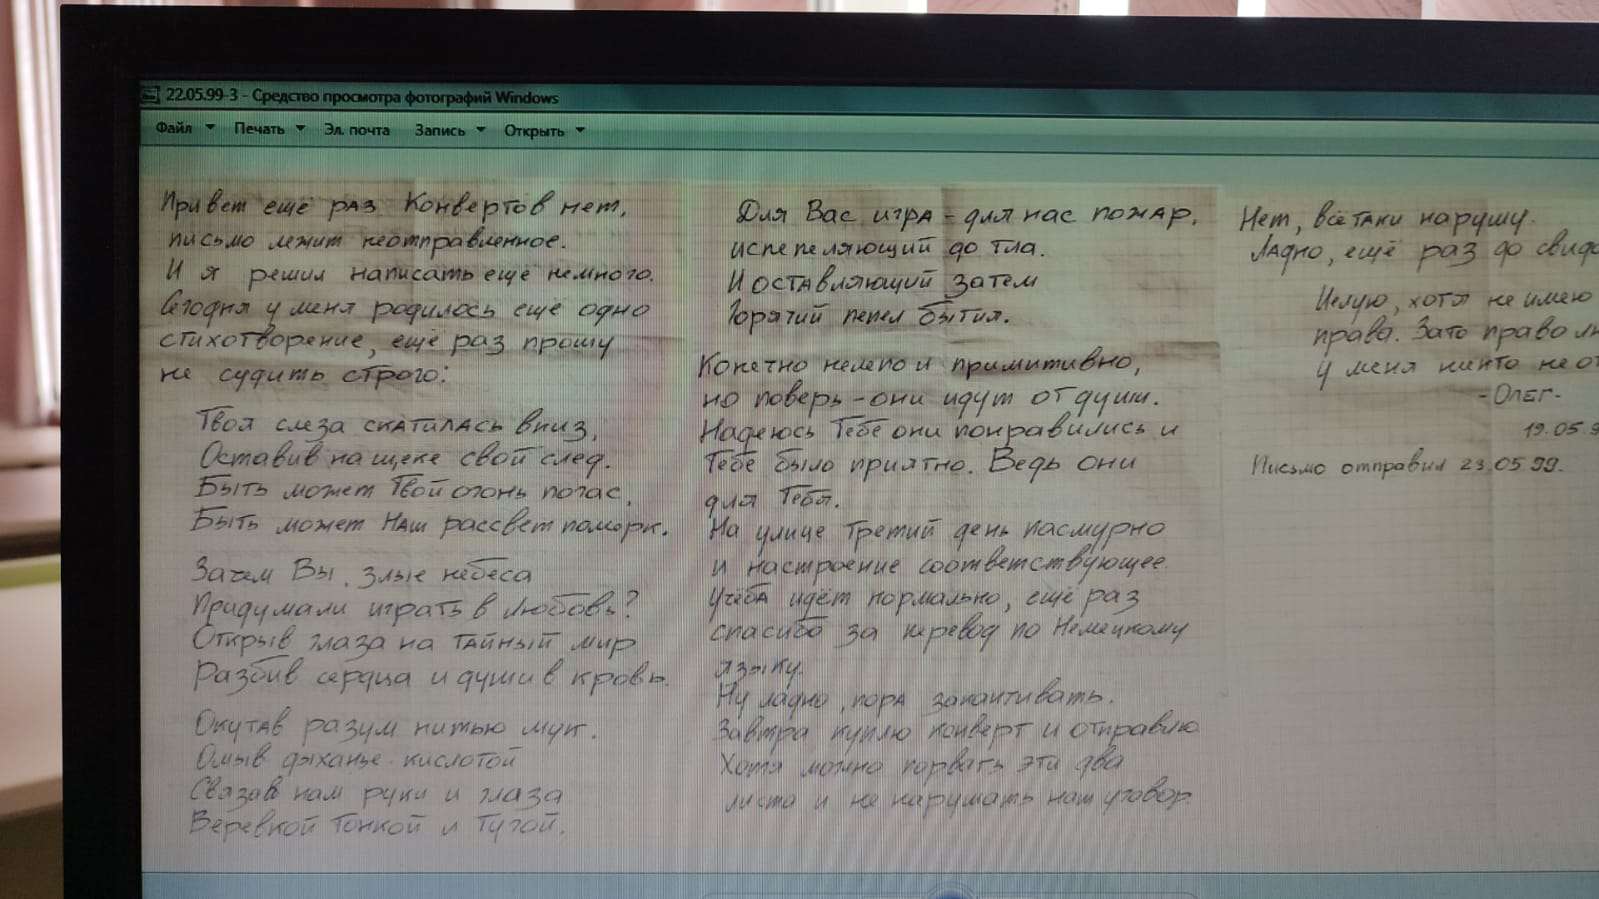 22.05.99-3 - Средство просмотра фотографий Windows
Файл Печать Эл. почта Запись Открыть
Привет ещё раз. Конвертов нет,
письмо лежит неотправленное.
И я решил написать ещё немного.
Сегодня у меня родилось ещё одно
стихотворение, ещё раз прошу
не судить строго:
Твоя слеза скатилась вниз,
Оставив на щеке свой след.
Быть может Твой огонь погас,
Быть может Наш рассвет померк.
Зачем Вы, злые небеса
Придумали играть в любовь?
Открыв глаза на тайный мир
Разбив сердца и души в кровь.
Окутав разум нитью мук.
Омыв дыханье кислотой
Связав нам руки и глаза
Веревкой Тонкой и Тугой.
Для Вас игра - для нас пожар,
испепеляющий до тла.
И оставляющий затем
Горячий пепел бытия.
Конечно нелепо и примитивно,
но поверь - они идут от души.
Надеюсь Тебе они понравились и
Тебе было приятно. Ведь они
для Тебя.
На улице третий день пасмурно
и настроение соответствующее.
Учёба идёт нормально, ещё раз
спасибо за перевод по Немецкому
языку.
Ну ладно, пора заканчивать.
Завтра куплю конверт и отправлю
Хотя можно порвать эти два
листа и не нарушать наш уговор.
Нет, всётаки нарушу.
Ладно, ещё раз до
Целую, хотя не имею
права. Зато право
у меня никто не
- Олег -
19.05.9
Письмо отправил 23.05 99.